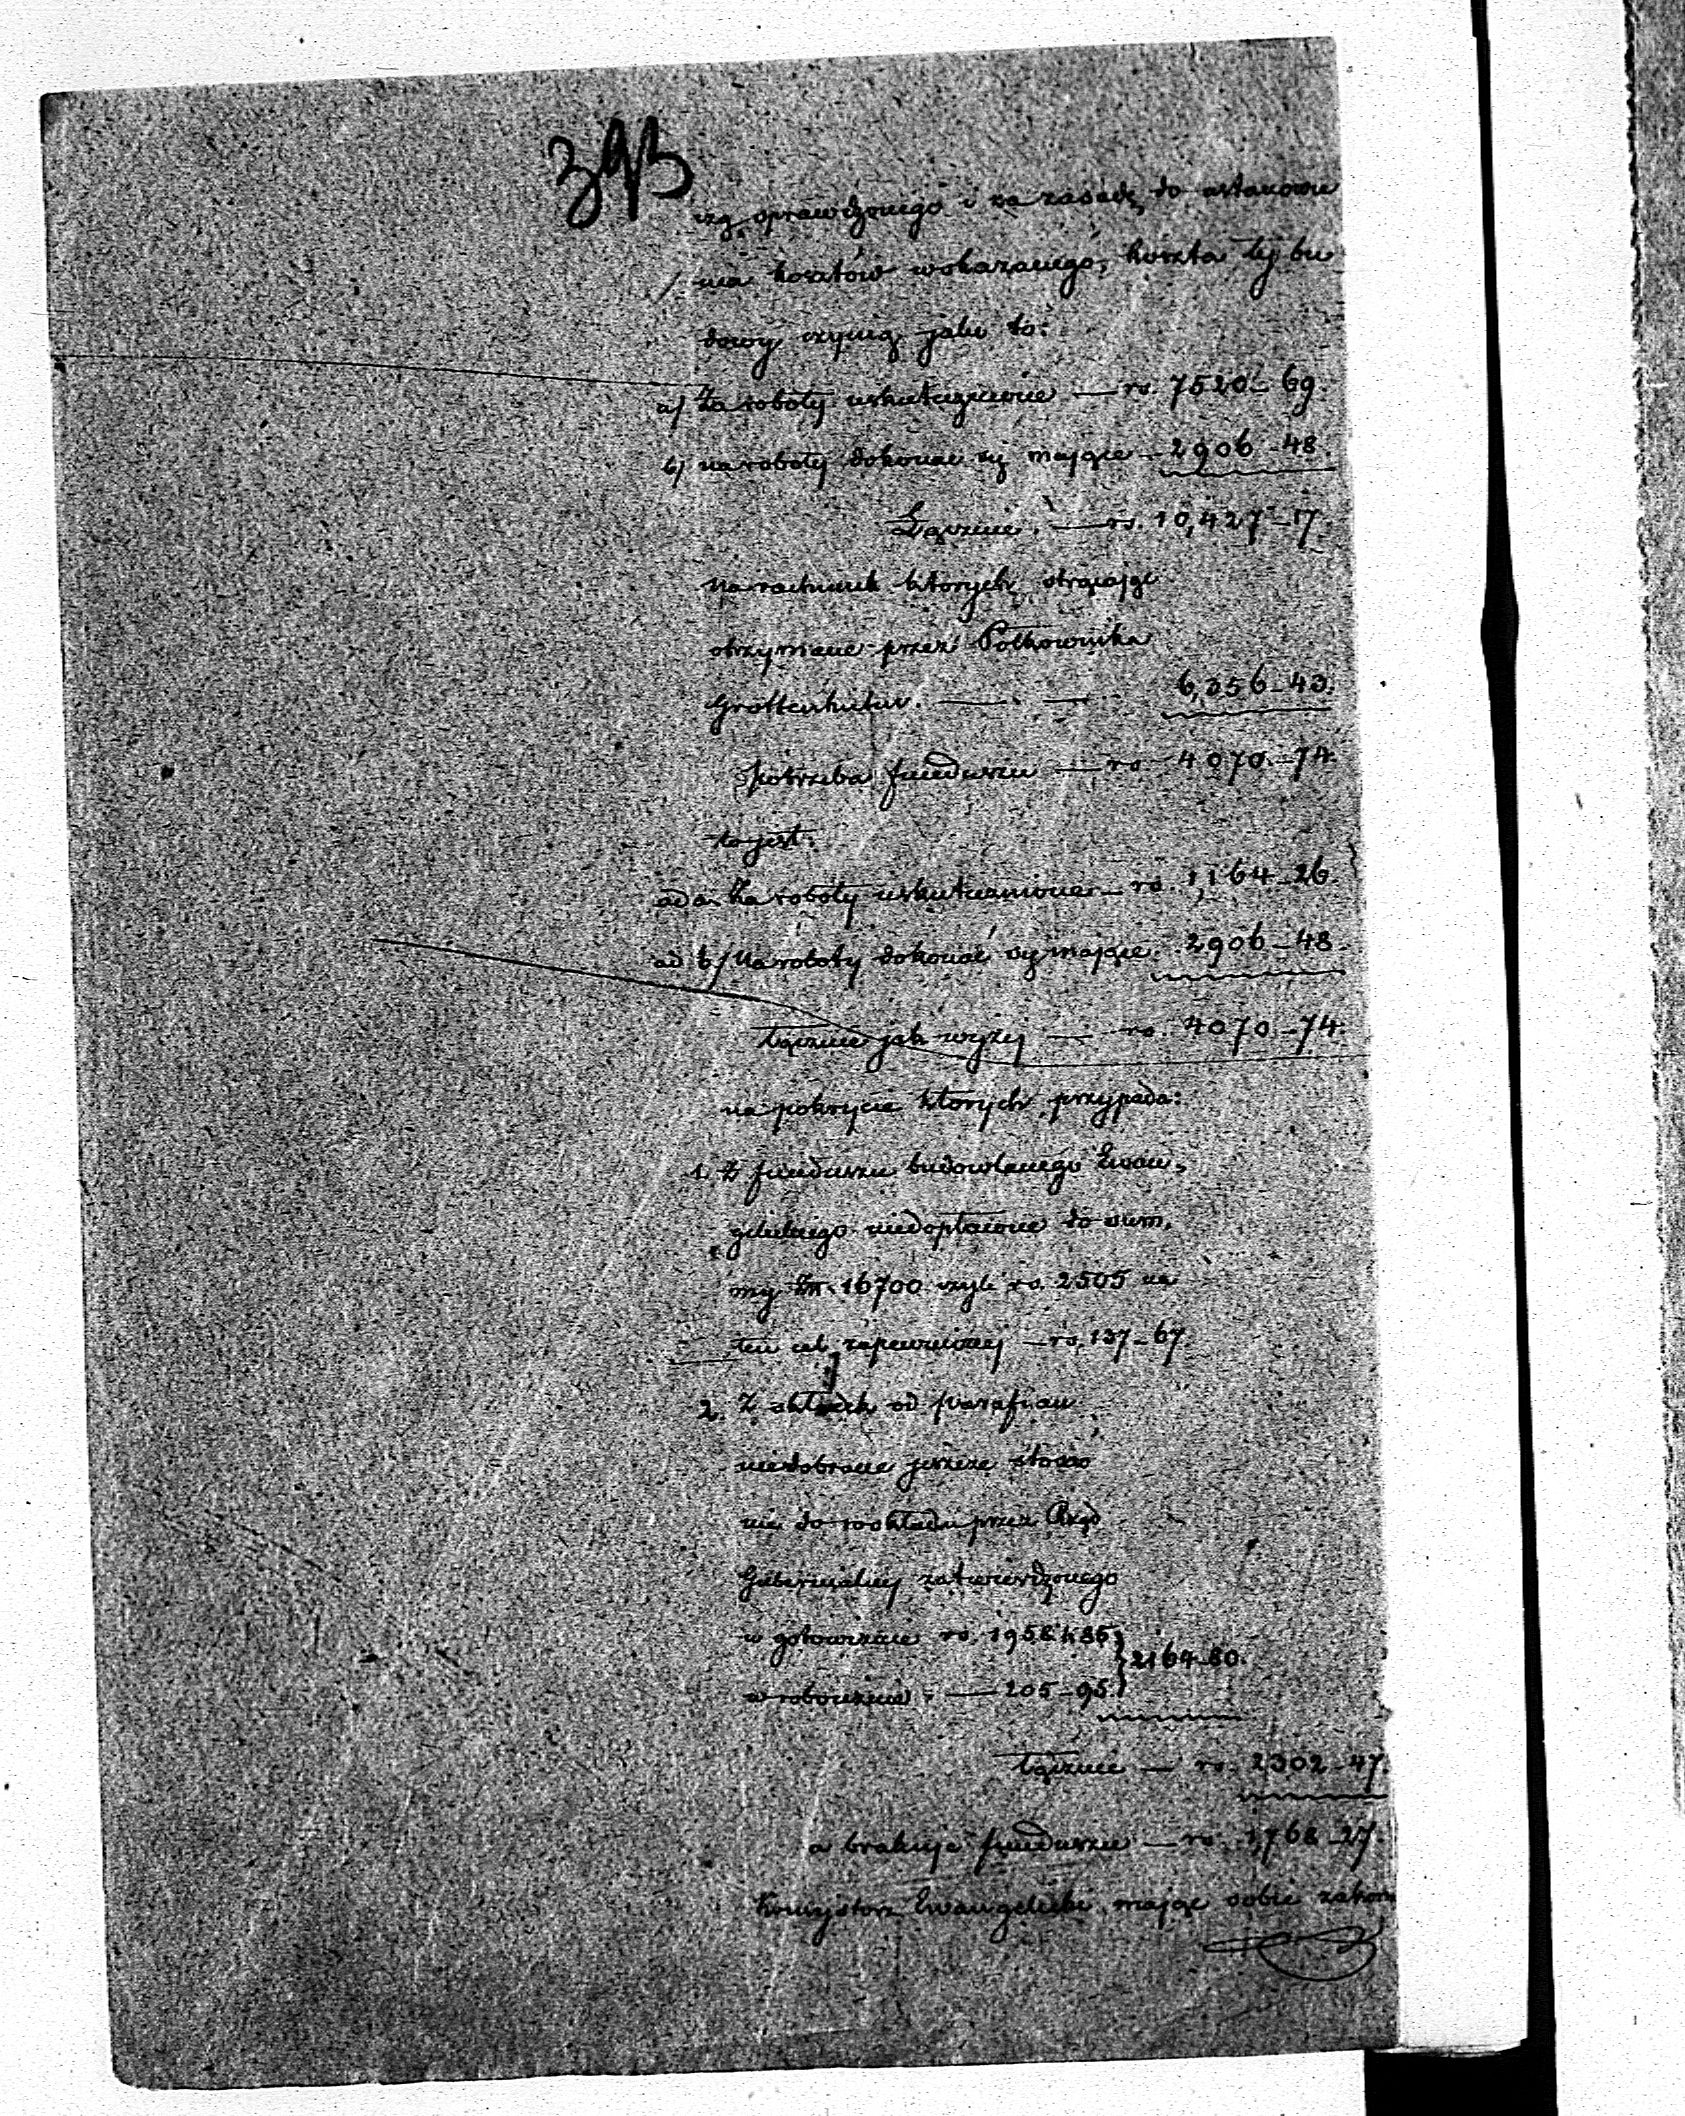 393
czą sprawdzonego i za zasadę do ustanowie
nia kosztów wskazanego, koszta tej bu
dowy czynią jako to:
a/ Za roboty uskutecznione — rs. 7520 – 69.
b/ na roboty dokonać się mające – 2906 – 48.
Łącznie. — rs. 10,427 – 17.
na rachunek których strącając
otrzymane przez Półkownika
— — 6,356 – 43.
potrzeba funduszu — rs 4070 – 74.
to jest.
ad a. Za roboty uskutecznione – rs. 1,164 – 26.
ad b/ Na roboty dokonać się mające. 2906 – 48.
łącznie jak wyżej — rs. 4070 – 74.
na pokrycie których przypada:
1. Z funduszu budowlanego Ewan„
gelickiego niedopłacone do sum„
my Zł. 16700 czyli rs. 2505 na
ten cel zapewnionej – rs. 137 – 67.
2. Z składek od parafian
niedobrane jeszcze stosow
nie do rozkładu przez Rząd
Gubernialny zatwierdzonego
w gotowiźnie rs. 1958 k 85
} 2164 – 80.
w robociźnie. — 205 – 95.
łącznie — rs. 2302 – 47.
a brakuje funduszu — rs. 1,768 – 27.
Konsystorz Ewangelicki mając sobie zakom